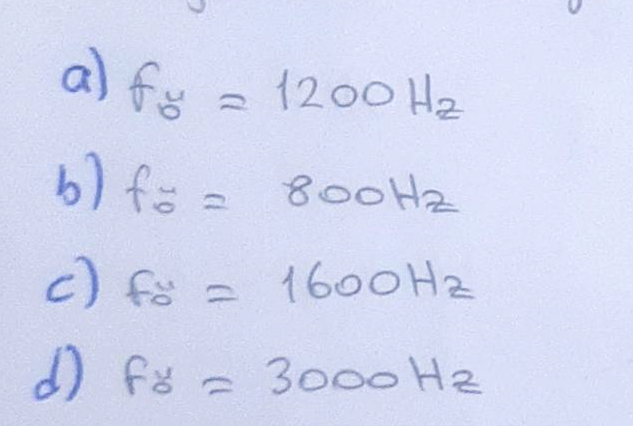 a) fö = 1200 Hz
b) fö = 800Hz
c) fö = 1600Hz
d) fö = 3000 Hz